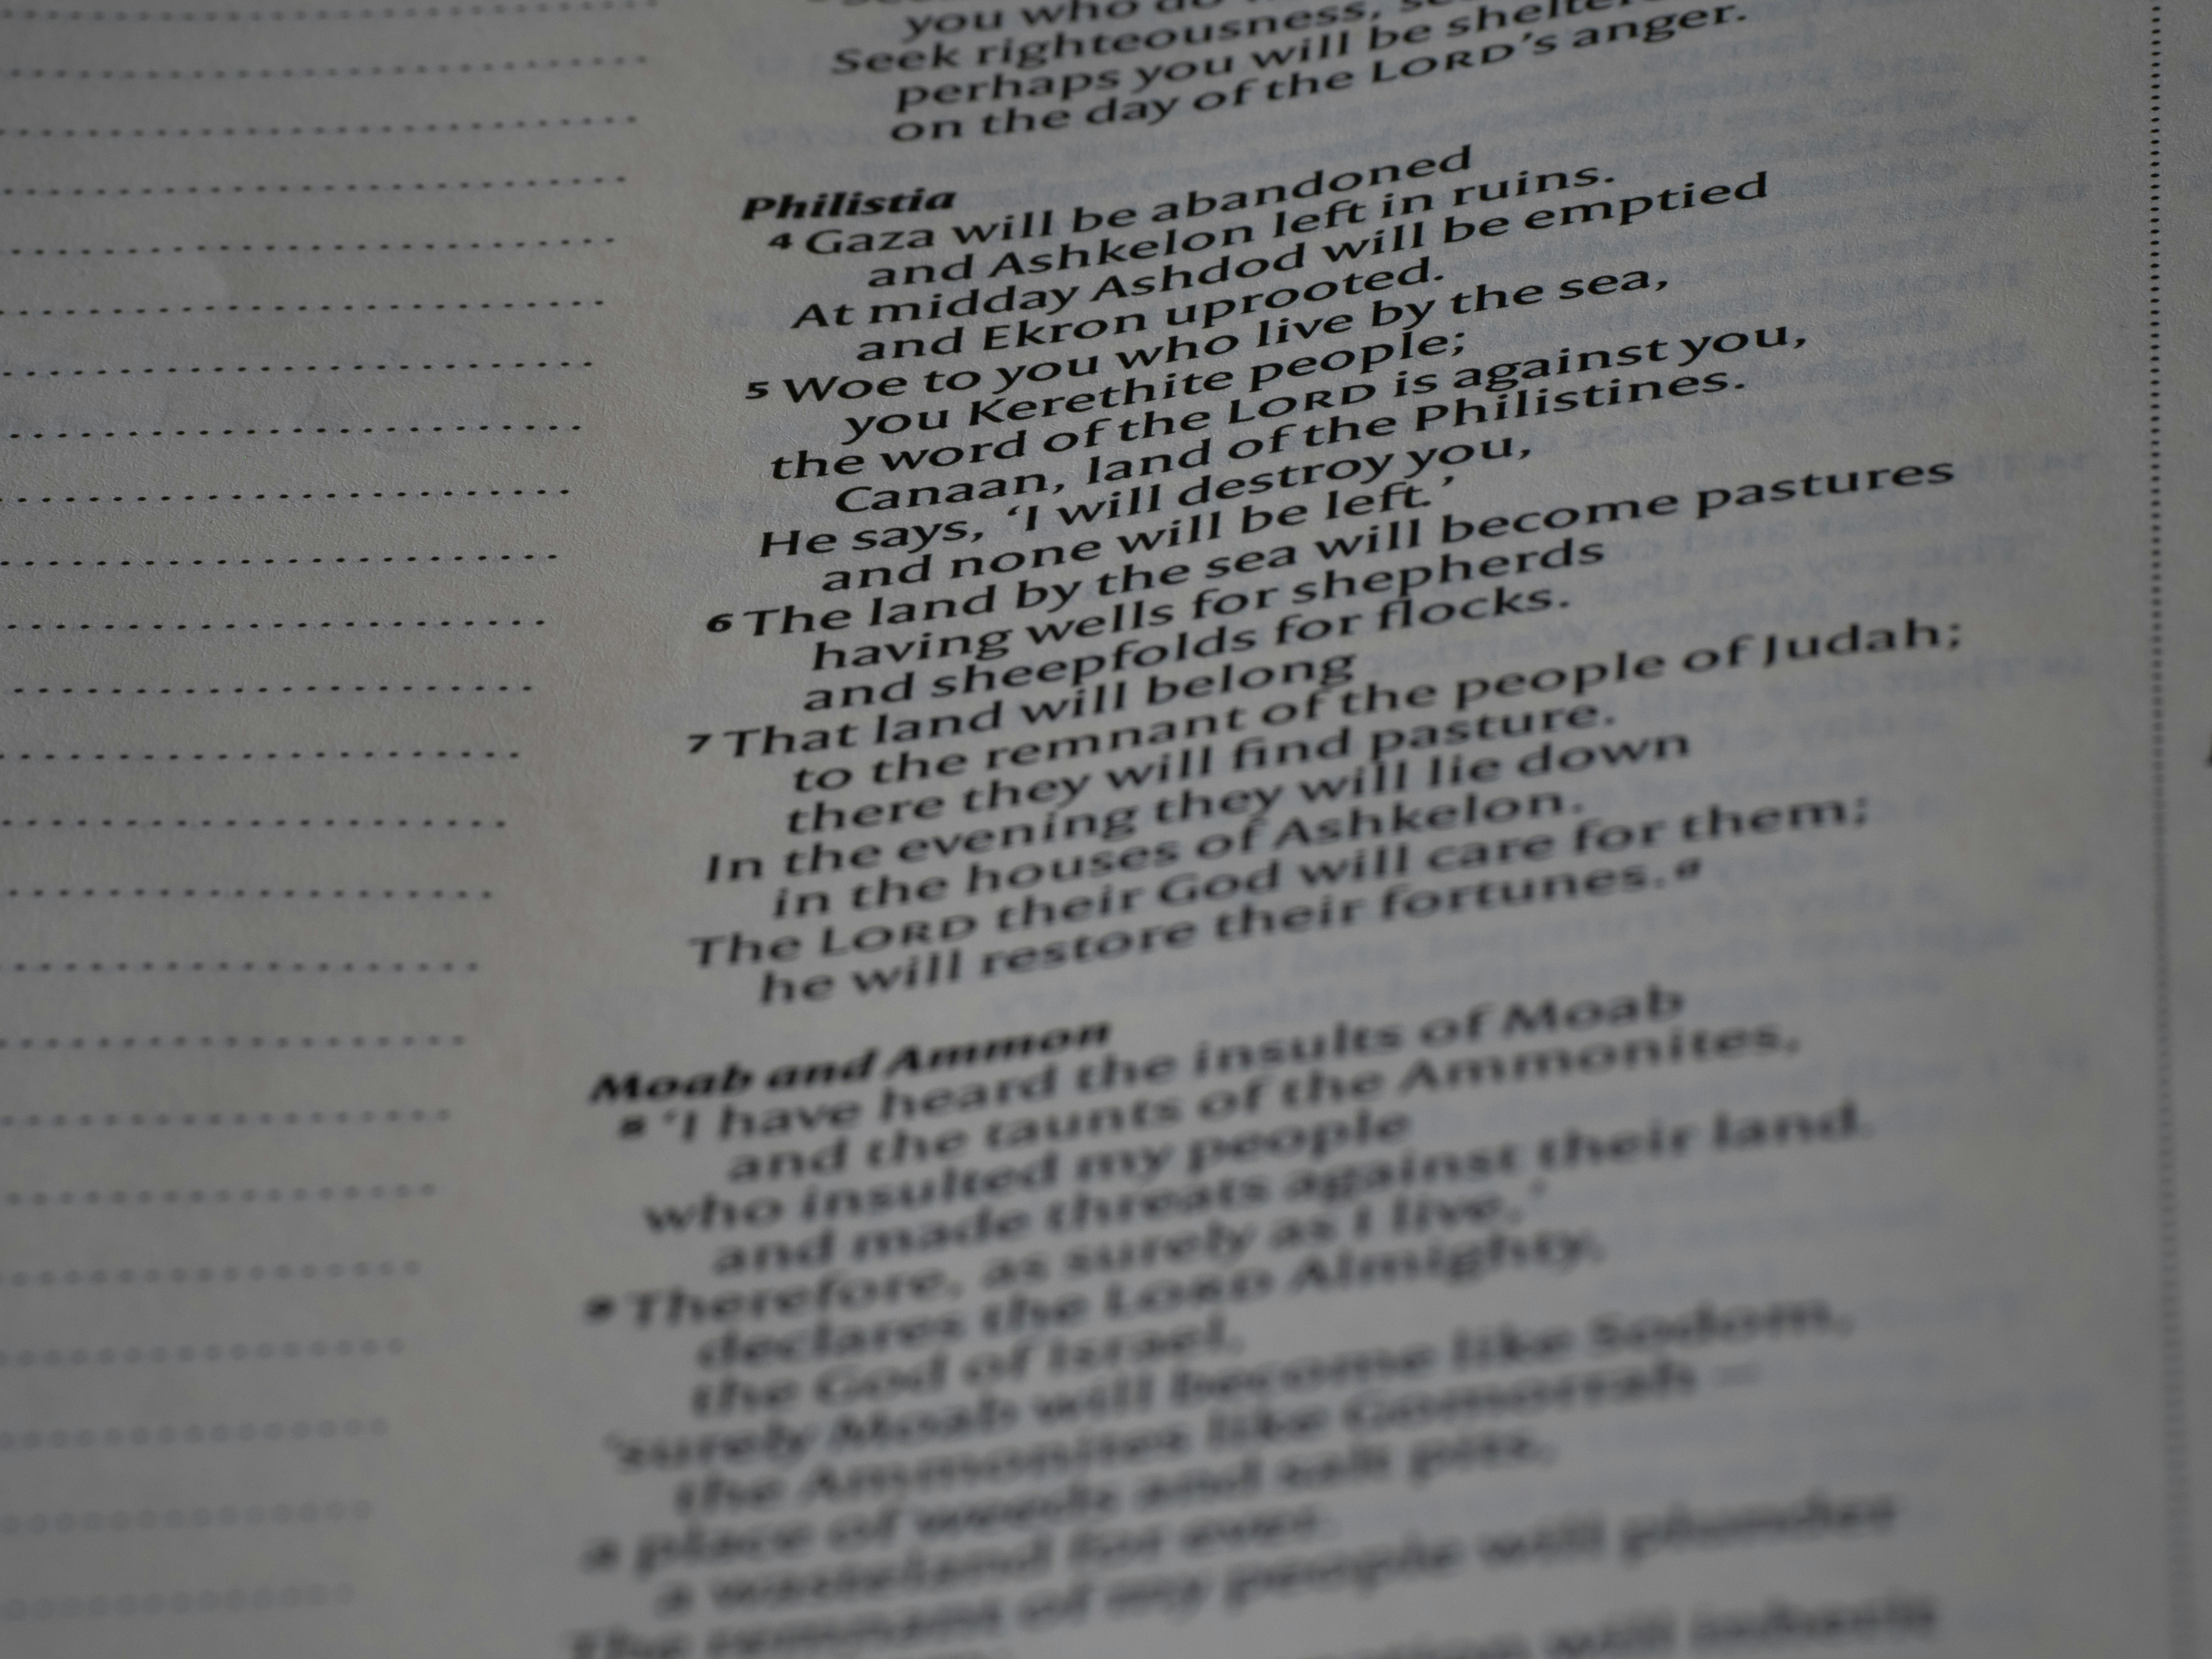 you who do
Seek righteousness,
perhaps you will be
on the day of the LORD's anger.
Philistia
4 Gaza will be abandoned
and Ashkelon left in ruins.
At midday Ashdod will be emptied
and Ekron uprooted.
5 Woe to you who live by the sea,
you Kerethite people;
the word of the LORD is against you,
Canaan, land of the Philistines.
He says, ‘I will destroy you,
and none will be left.’
6 The land by the sea will become pastures
having wells for shepherds
and sheepfolds for flocks.
7 That land will belong
to the remnant of the people of Judah;
there they will find pasture.
In the evening they will lie down
in the houses of Ashkelon.
The LORD their God will care for them;
he will restore their fortunes.a
Moab and Ammon
8 ‘I have heard the insults of Moab
and the taunts of the Ammonites,
who insulted my people
and made threats against their land.
9 Therefore, as surely as I live,’
declares the LORD Almighty,
the God of Israel,
‘surely Moab will become like Sodom,
the Ammonites like Gomorrah –
a place of weeds and salt pits,
a wasteland for ever.
The remnant of my people will plunder
will inherit